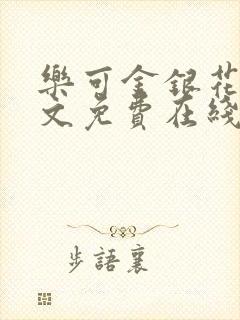 樂可金銀花
文免費在綫
步語裏